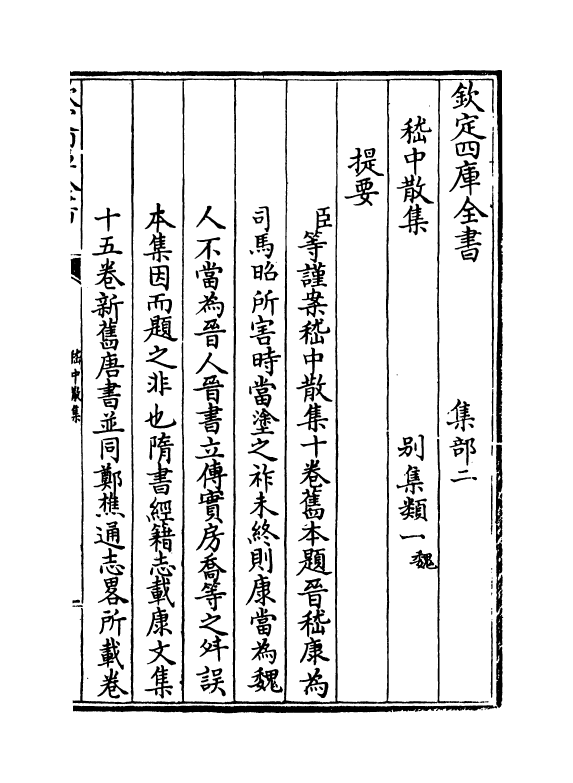 欽定四庫全書　　　集部二
嵇中散集　　　别集類一魏
提要
臣等謹案嵇中散集十卷舊本題晉嵇康為
司馬昭所害時當塗之祚未終則康當為魏
人不當為晉人晉書立傳實房喬等之舛誤
本集因而題之非也隋書經籍志載康文集
十五卷新舊唐書並同鄭樵通志畧所載卷
嵇中散集